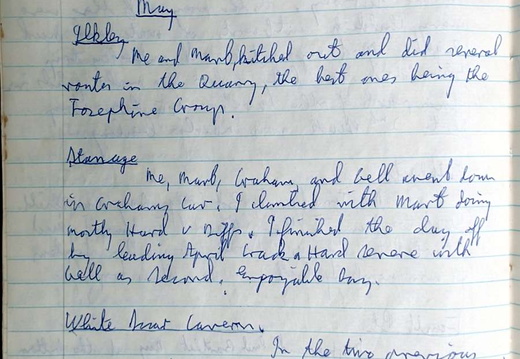 May
Ilkley
Me and Mart, hitched out and did several
routes in the Quarry, the best ones being the
Josephine Group.
Stanage
Me, Mart, Graham, and Gell went down
in Grahams Car. I climbed with Mart doing
mostly Hard V Diffs. I finished the day off
by leading April Crack a Hard Severe with
Gell as Second. Enjoyable Day.
White Scar Cavern.
In the two previous